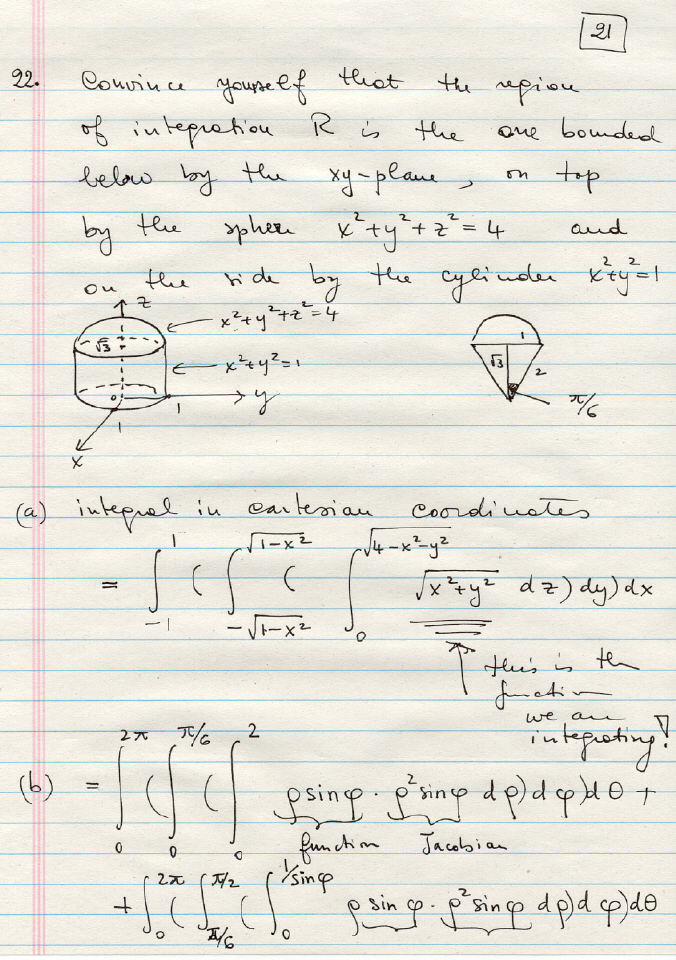 21
22. Convince yourself that the region
of integration R is the one bounded
below by the xy-plane, on top
by the sphere x²+y²+z²=4 and
on the side by the cylinder x²+y²=1
z
x²+y²+z²=4
√3
x²+y²=1
0
1
y
1
x
1
√3
2
π/6
(a) integral in cartesian coordinates
= ∫_{-1}^{1} ( ∫_{-√(1-x²)}^{√(1-x²)} ( ∫_{0}^{√(4-x²-y²)} √(x²+y²) dz) dy) dx
this is the
function
we are
integrating!
(b) = ∫_{0}^{2π} ( ∫_{0}^{π/6} ( ∫_{0}^{2} ρ sin φ · ρ² sin φ dρ) dφ) dθ +
function Jacobian
+ ∫_{0}^{2π} ( ∫_{π/6}^{π/2} ( ∫_{0}^{1/sin φ} ρ sin φ · ρ² sin φ dρ) dφ) dθ